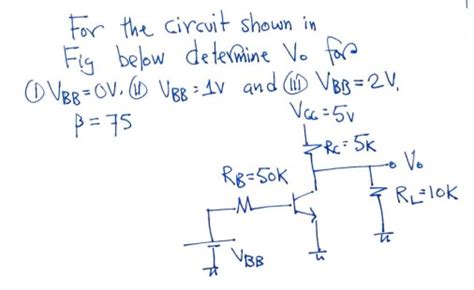 For the circuit shown in
Fig below determine Vo for
(i) VBB = 0V, (ii) VBB = 1V and (iii) VBB = 2V.
β = 75
VCC = 5v
RC = 5K
Vo
RB = 50K
RL = 10K
VBB